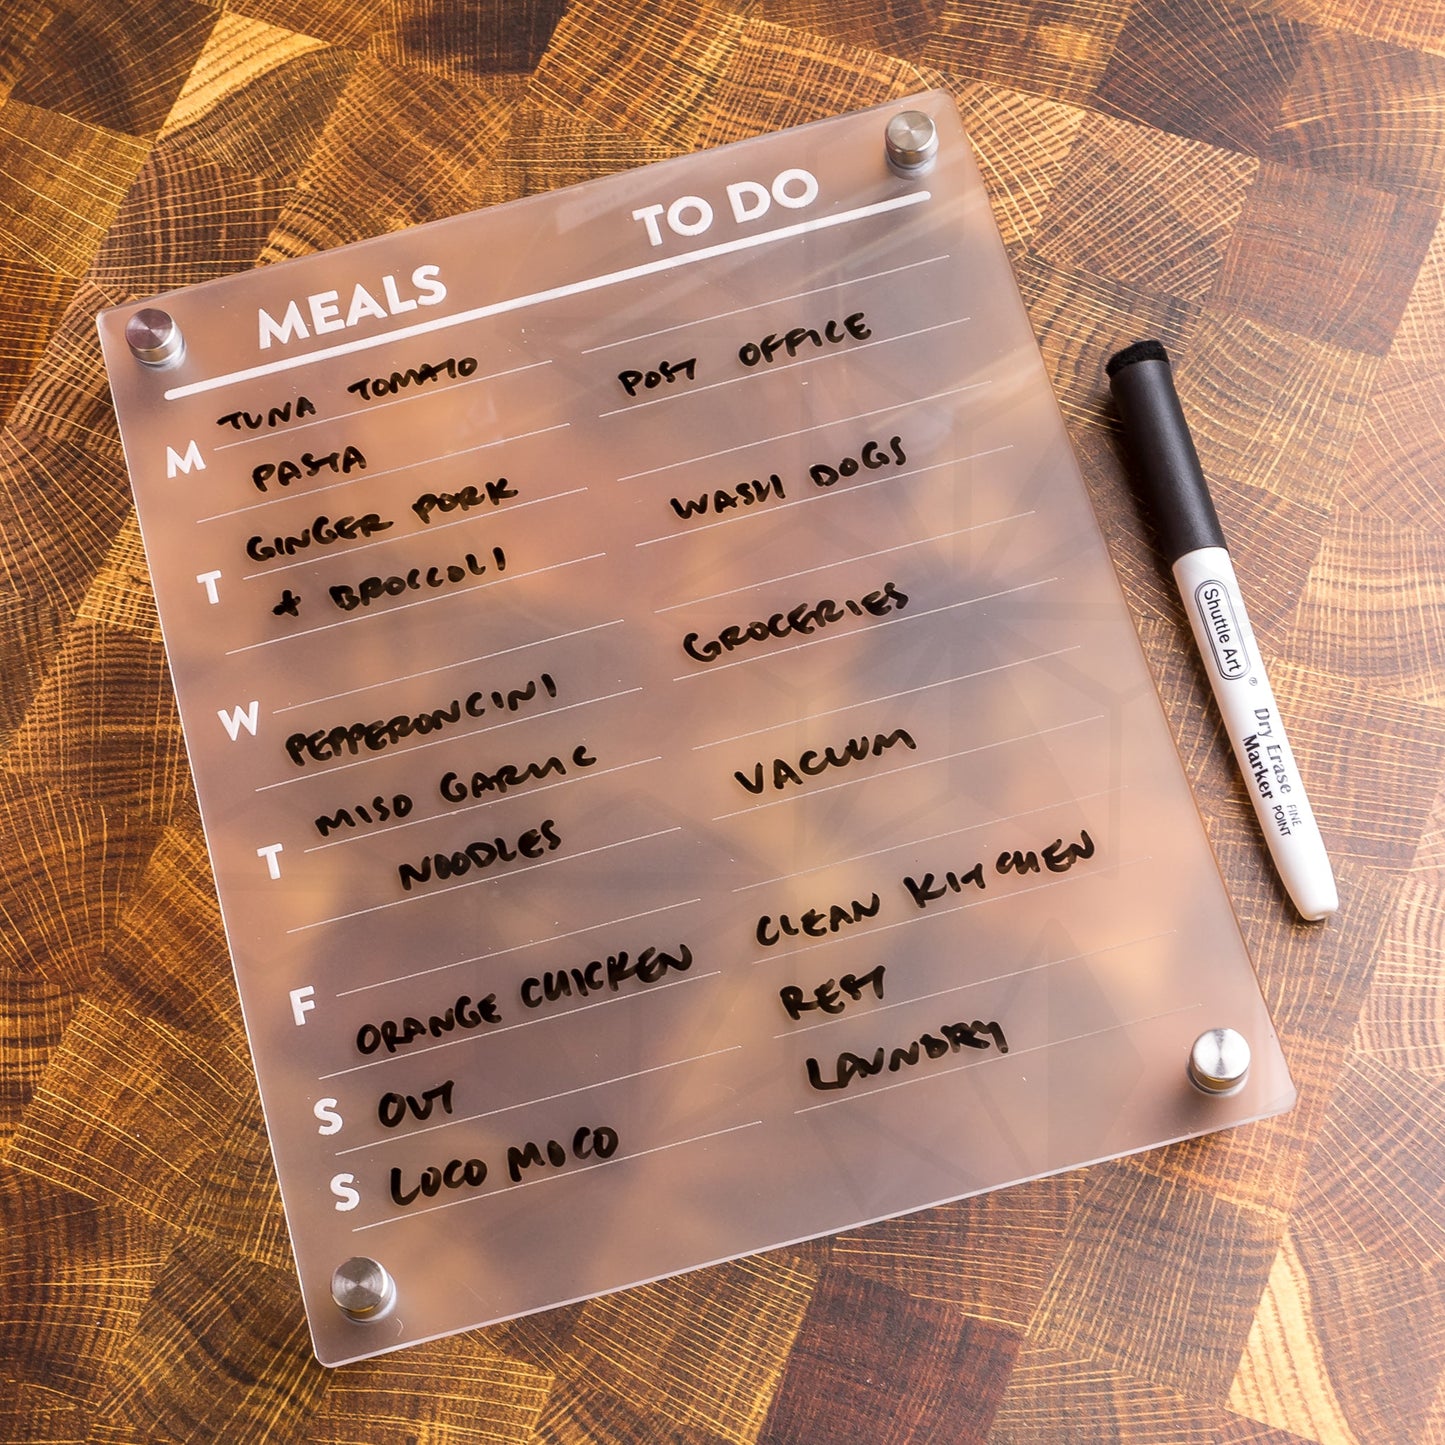 MEALS TO DO
M
TUNA TOMATO
PASTA
POST OFFICE
T
GINGER PORK
+ BROCCOLI
WASH DOGS
W
PEPPERONCINI
GROCERIES
T
MISO GARLIC
NOODLES
VACUUM
F
ORANGE CHICKEN
CLEAN KITCHEN
S
OUT
REST
S
LOCO MOCO
LAUNDRY
Shuttle Art ®
Dry Erase
Marker
FINE
POINT